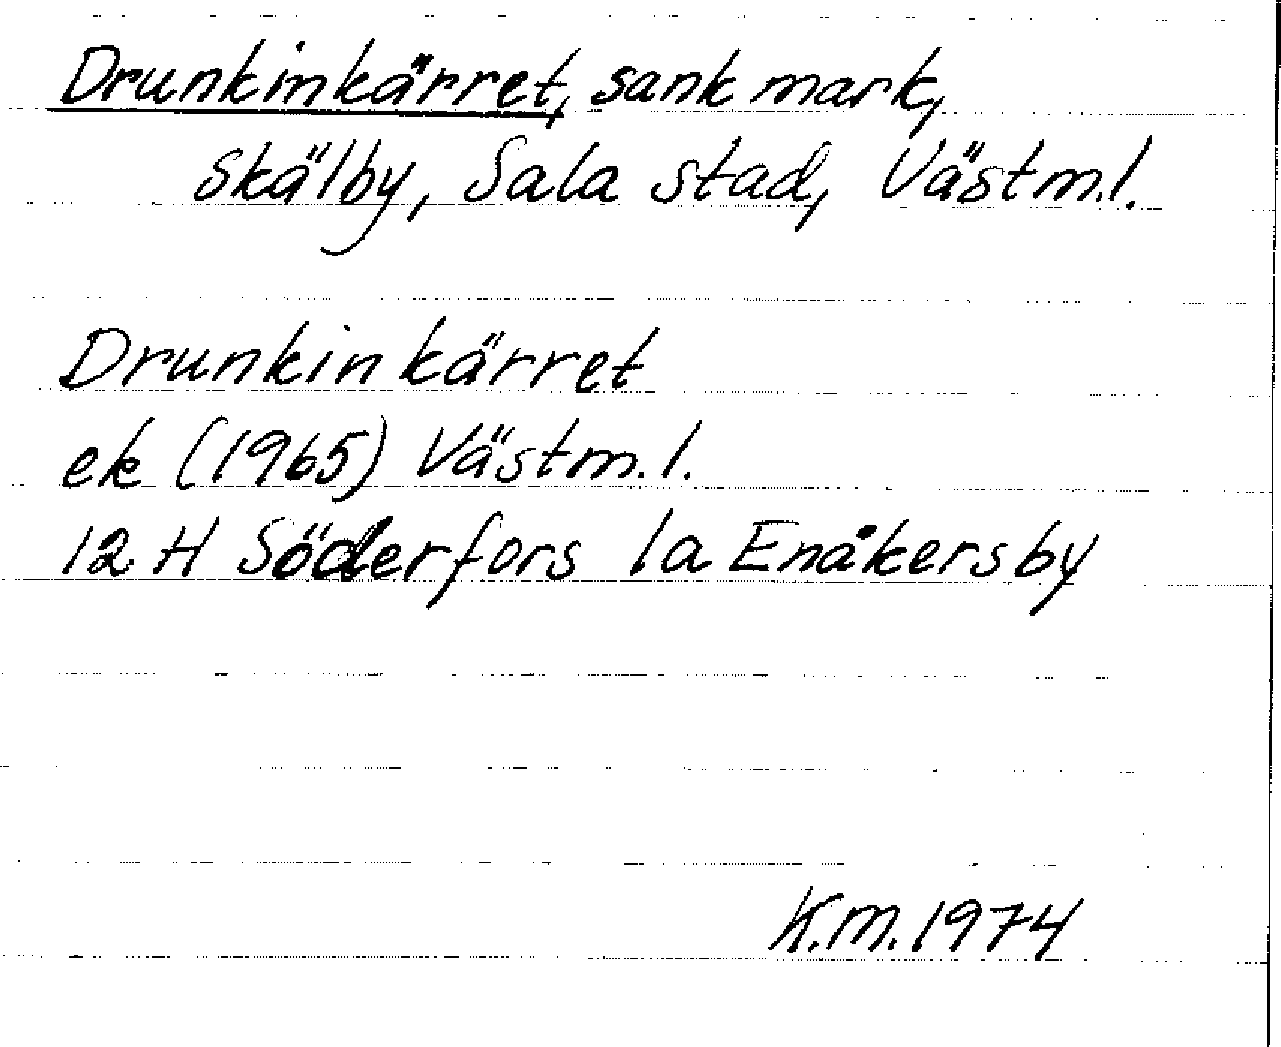 Drunkinkärret, sank mark,
Skälby, Sala stad, Västm.l.
Drunkinkärret
ek (1965) Västm.l.
12 H Söderfors 1a Enåkersby
K.M. 1974